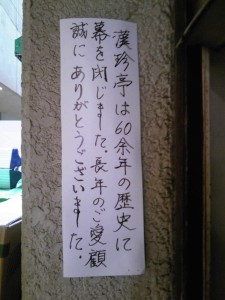 漢珍亭は60余年の歴史に
幕を閉じました。長年のご愛顧
誠にありがとうございました。